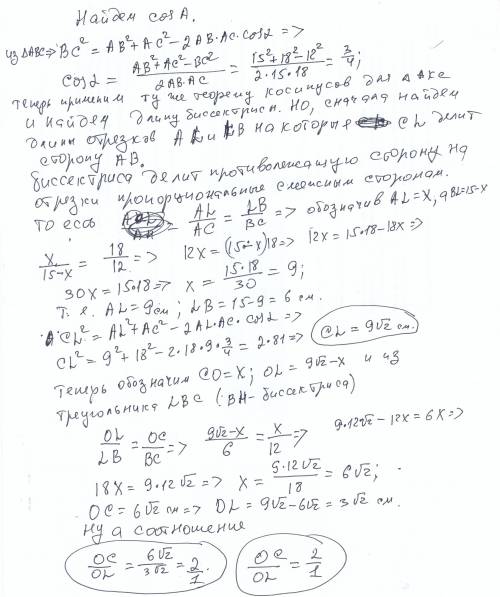 Найдем cos A.
из ΔABC⇒ BC² = AB² + AC² − 2AB·AC·cosα ⇒
cosα = (AB² + AC² − BC²)/(2AB·AC) = (15² + 18² − 12²)/(2·15·18) = 3/4;
теперь применим ту же теорему косинусов для Δ
и найдем длину биссектрисы. Но, сначала найдем
длины отрезков AL и LB на которые CL делит
сторону AB.
биссектриса делит противолежащую сторону на
отрезки пропорциональные смежным сторонам.
то есть AL/AC = LB/BC ⇒ обозначив AL=X, а BL=15−X
X/(15−X) = 18/12 ⇒ 12X = (15−X)18 ⇒ 12X = 15·18−18X ⇒
30X = 15·18 ⇒ X = (15·18)/30 = 9;
т. е. AL = 9см; LB = 15−9 = 6 см.
CL² = AL² + AC² − 2AL·AC·cosα ⇒
CL² = 9² + 18² − 2·18·9·3/4 = 2·81 ⇒ CL = 9√2 см.
Теперь обозначим CO = X; OL = 9√2−X и из
треугольника LBC (BH- биссектриса)
OL/LB = OC/BC ⇒ (9√2−X)/6 = X/12 ⇒ 9·12√2 − 12X = 6X ⇒
18X = 9·12√2 ⇒ X = (9·12√2)/18 = 6√2;
OC = 6√2 см ⇒ OL = 9√2−6√2 = 3√2 см.
Ну а соотношение
OC/OL = 6√2/3√2 = 2/1. OC/OL = 2/1